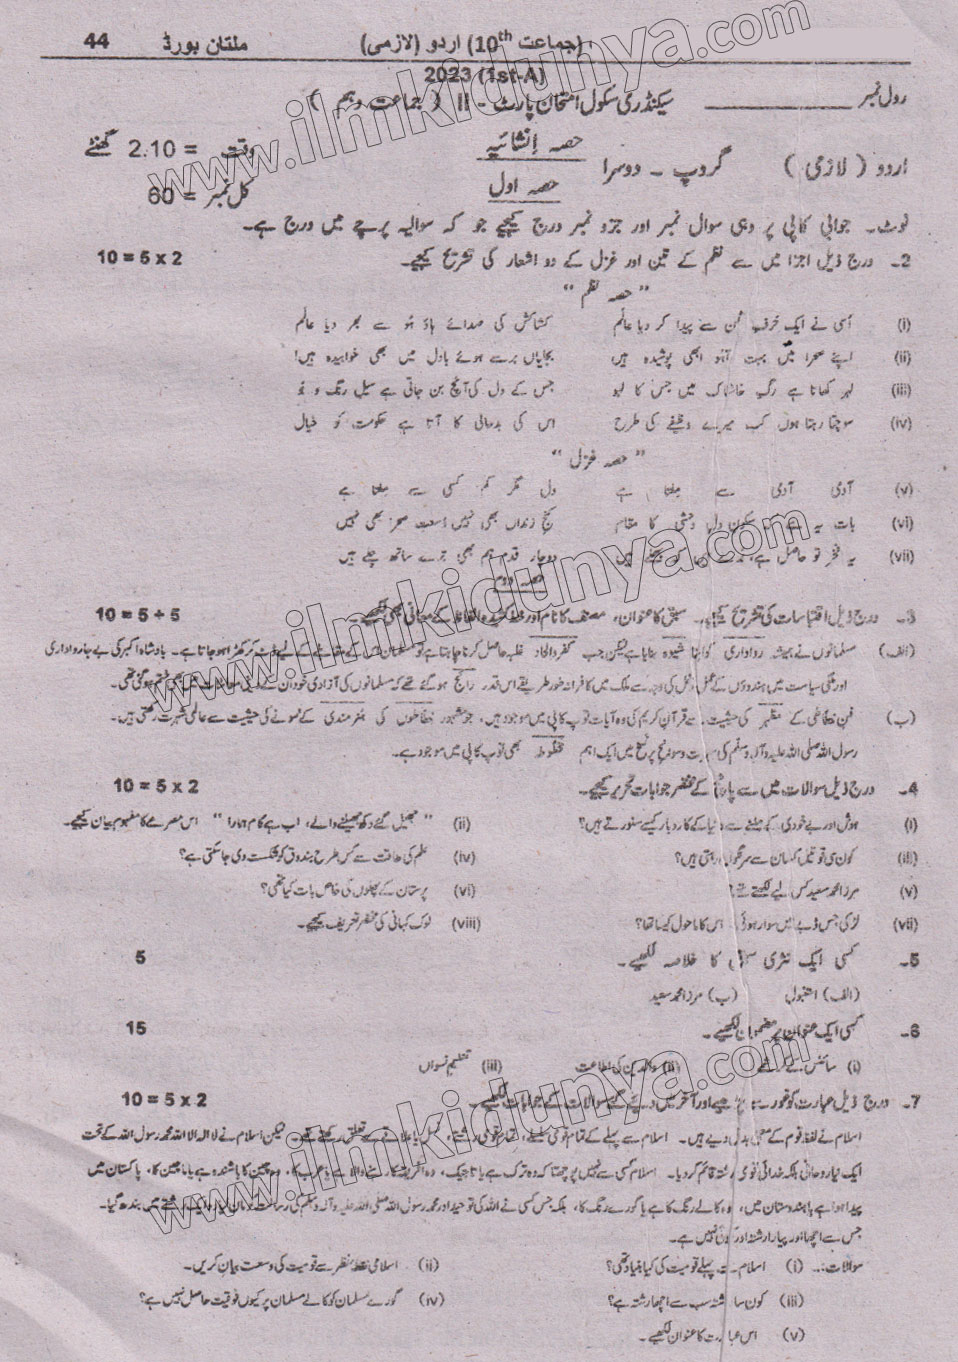 44 ملتان بورڈ (جماعت 10th) اردو (لازمی)
2023 (1st-A)
رول نمبر سیکنڈری سکول امتحان پارٹ - II ( جماعت دہم )
اردو ( لازمی ) گروپ - دوسرا حصہ اِنشائیہ وقت = 2.10 گھنٹے
حصہ اول کل نمبر = 60
نوٹ۔ جوابی کاپی پر وہی سوال نمبر اور جزو نمبر درج کیجیے جو کہ سوالیہ پرچے میں درج ہے۔
2۔ درج ذیل اجزا میں سے نظم کے تین اور غزل کے دو اشعار کی تشریح کیجیے۔ 10 = 5 x 2
" حصہ نظم "
(i) اُسی نے ایک حرفِ کُن سے پیدا کر دیا عالم کشاکش کی صدائے ہاؤ ہُو سے بھر دیا عالم
(ii) اپنے صحرا میں بہت آہو ابھی پوشیدہ ہیں بجلیاں برسے ہوئے بادل میں بھی خوابیدہ ہیں!
(iii) لہر کھاتا ہے رگِ خاشاک میں جس کا لہو جس کے دل کی آنچ بن جاتی ہے سیلِ رنگ و بُو
(iv) سوچتا رہتا ہوں کب میرے وظیفے کی طرح اس کی بدحالی کا آتا ہے حکومت کو خیال
" حصہ غزل "
(v) آدمی آدمی سے ملتا ہے دل مگر کم کسی سے ملتا ہے
(vi) بات یہ ہے کہ سکونِ دلِ وحشی کا مقام کنجِ زنداں بھی نہیں وُسعتِ صحرا بھی نہیں
(vii) یہ فخر تو حاصل ہے، بُرے ہیں کہ بھلے ہیں دو چار قدم ہم بھی ترے ساتھ چلے ہیں
حصہ دوم
3۔ درج ذیل اقتباسات کی تشریح کیجیے۔ سبق کا عنوان، مصنف کا نام اور خط کشیدہ الفاظ کے معانی بھی لکھیے۔ 10 = 5 + 5
(الف) مسلمانوں نے ہمیشہ رواداری کو اپنا شیوہ بنایا ہے لیکن جب کفر و الحاد غلبہ حاصل کرنا چاہتا ہے تو مسلمان اس کے مقابلے کے لیے ڈٹ کر کھڑا ہو جاتا ہے۔ بادشاہ اکبر کی بے جا رواداری
اور ملکی سیاست میں ہندوؤں کے عمل دخل کی وجہ سے ملک میں کافرانہ طور طریقے اس قدر رائج ہو گئے تھے کہ مسلمانوں کی آزادی خود ان کے دینی معاملات میں بھی ختم ہو گئی تھی۔
(ب) فنِ خطاطی کے مظہر کی حیثیت سے قرآنِ کریم کی وہ آیات توپ کاپی میں موجود ہیں، جو مشہور خطاطوں کی ہنرمندی کے نمونے کی حیثیت سے عالمی شہرت رکھتی ہیں۔
رسول اللہ صلی اللہ علیہ وآلہ وسلم کی سیرت و سوانح پر نسخ میں ایک اہم مخطوطہ بھی توپ کاپی میں موجود ہے۔
4۔ درج ذیل سوالات میں سے پانچ کے مختصر جوابات تحریر کیجیے۔ 10 = 5 x 2
(i) ہوش اور بے خودی کے ملنے سے دنیا کے کاروبار کیسے سنورتے ہیں؟ (ii) " جھیل گئے دکھ جھیلنے والے، اب ہے کام ہمارا " اس مصرعے کا مفہوم بیان کیجیے۔
(iii) کون سی قوتیں کسان سے سرنگوں رہتی ہیں؟ (iv) علم کی طاقت سے کس طرح بندوق کو شکست دی جا سکتی ہے؟
(v) مرزا محمد سعید کس لیے لکھتے تھے؟ (vi) پرستان کے پھلوں کی خاص بات کیا تھی؟
(vii) لڑکی جس ڈبے میں سوار ہوئی، اس کا ماحول کیسا تھا؟ (viii) لوک کہانی کی مختصر تعریف کیجیے۔
5۔ کسی ایک نثری سبق کا خلاصہ لکھیے۔ 5
(الف) استنبول (ب) مرزا محمد سعید
6۔ کسی ایک عنوان پر مضمون لکھیے۔ 15
(i) سائنس کے کرشمے (ii) والدین کی اطاعت (iii) تعلیمِ نسواں
7۔ درج ذیل عبارت کو غور سے پڑھیے اور آخر میں دیے گئے سوالات کے جوابات لکھیے۔ 10 = 5 x 2
اسلام نے لفظ قوم کے معنی بدل دیے ہیں۔ اسلام سے پہلے کے تمام قومی سلسلے، تمام قومی رشتے، نسل یا علاقے سے تعلق رکھتے تھے لیکن اسلام نے لا الہ الا اللہ محمد رسول اللہ کے تحت
ایک نیا روحانی بلکہ خدائی قومی رشتہ قائم کر دیا۔ اسلام کسی سے نہیں پوچھتا کہ وہ ترک ہے یا تاجیک، وہ افریقہ کا رہنے والا ہے یا عرب کا، وہ چین کا باشندہ ہے یا ماچین کا، پاکستان میں
پیدا ہوا ہے یا ہندوستان میں، وہ کالے رنگ کا ہے یا گورے رنگ کا، بلکہ جس کسی نے اللہ کی توحید اور محمد رسول اللہ صلی اللہ علیہ وآلہ وسلم کی رسالت کو مان لیا، وہ ایک رشتے میں بندھ گیا۔
جس سے اچھا اور پیارا رشتہ اور کوئی نہیں ہے۔
سوالات:۔ (i) اسلام سے پہلے قومیت کی کیا بنیاد تھی؟ (ii) اسلامی نقطۂ نظر سے قومیت کی وسعت بیان کریں۔
(iii) کون سا رشتہ سب سے اچھا رشتہ ہے؟ (iv) گورے مسلمان کو کالے مسلمان پر کیوں فوقیت حاصل نہیں ہے؟
(v) اس عبارت کا عنوان لکھیے۔
www.ilmkidunya.com
www.ilmkidunya.com
www.ilmkidunya.com